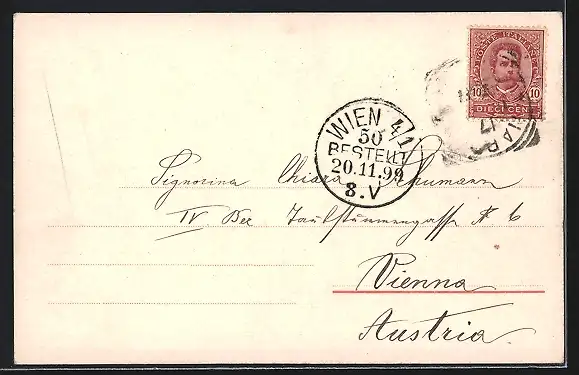 POSTE ITALIANE
10 10
DIECI CENT
WIEN 4/1
50
BESTELLT
20.11.99
8.V
Signorina Chiara Schumann
IV Bez Taubstummengasse № 6
Vienna
Austria